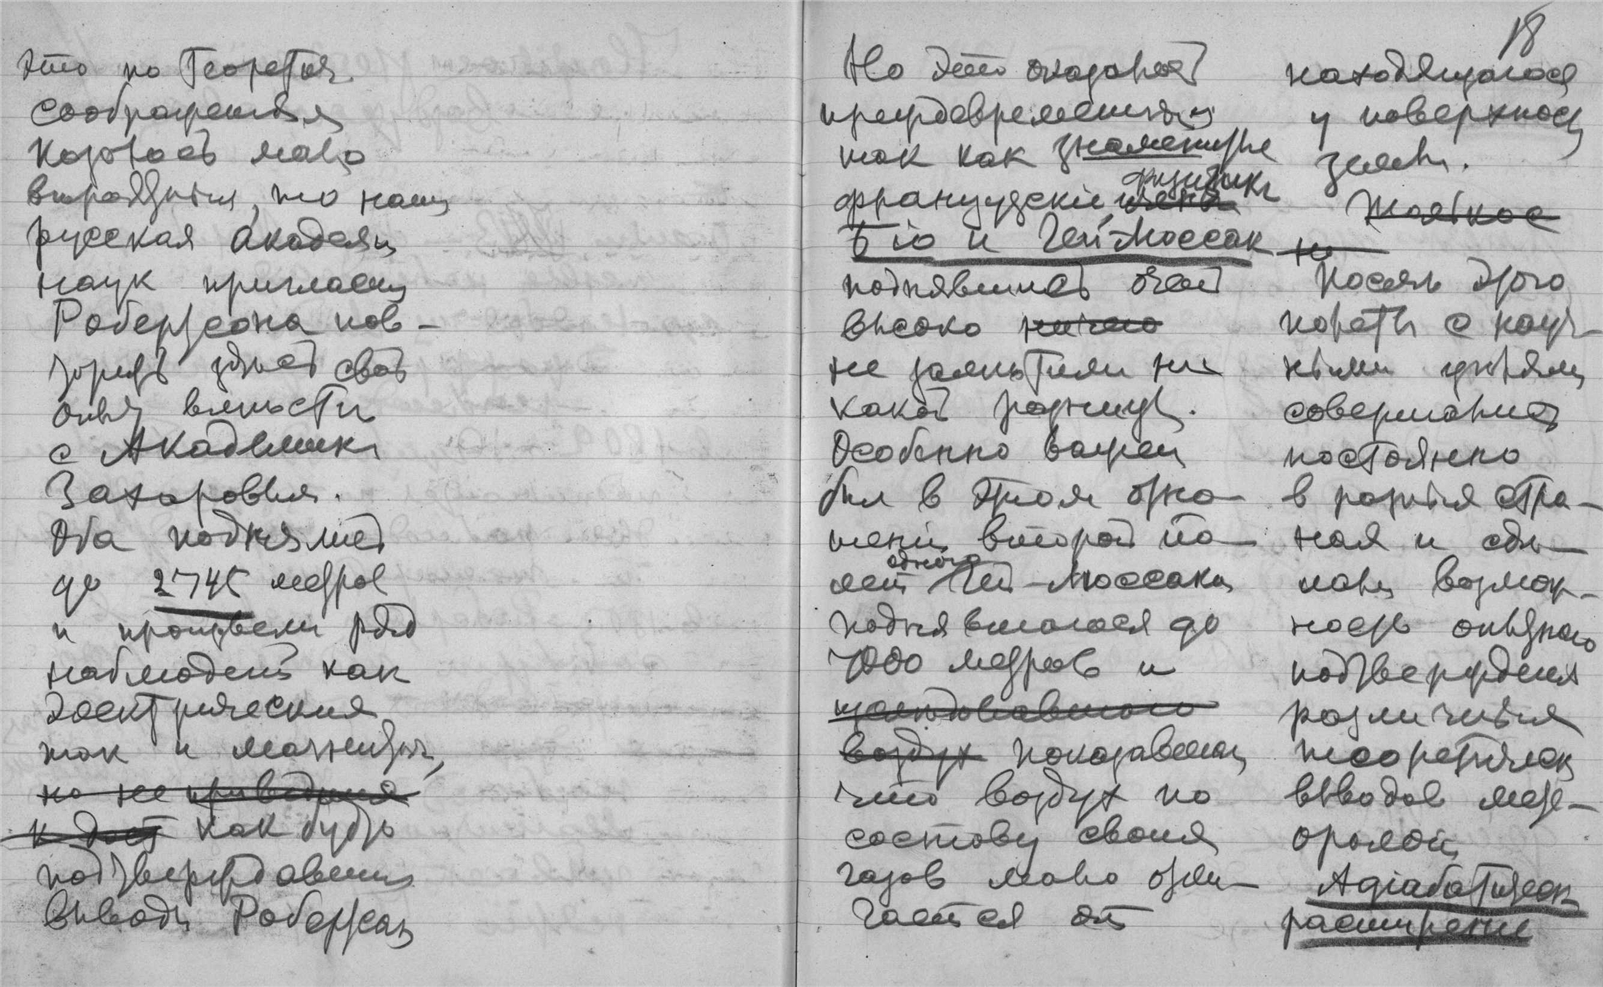 это по теоретич.
соображениям
казалось мало
вероятным, то наша
русская академия
наук пригласила
Робертсона пов-
торить здесь свой
опыт вместе
с Академиком
Захаровым.
Оба поднялись
до 2745 метров
и произвели ряд
наблюдений как
электрических
так и магнитных,
но не приведших
к дост как будто
подтверждавших
выводы Робертсона
18
Но это оказалось
преждевременным
так как знаменитые
физики
французскіе
Біо и Гей-Люссак
поднявшись очень
высоко ничего
не заметили ни
какой разницы.
Особенно важен
был в этом отно-
шении второй по-
одного
лет Гей-Люссака
поднявшагося до
7000 метров и
воздух показавший
что воздух по
составу своих
газов мало отли-
чается от
находящагося
у поверхности
земли.
не
После этого
полеты с науч-
ными целями
совершались
постоянно
в разных стра-
нах и сде-
лали возмож-
ность опытного
подтверждения
различных
теоретических
выводов мете-
орологии
Адіабатическ
расширение